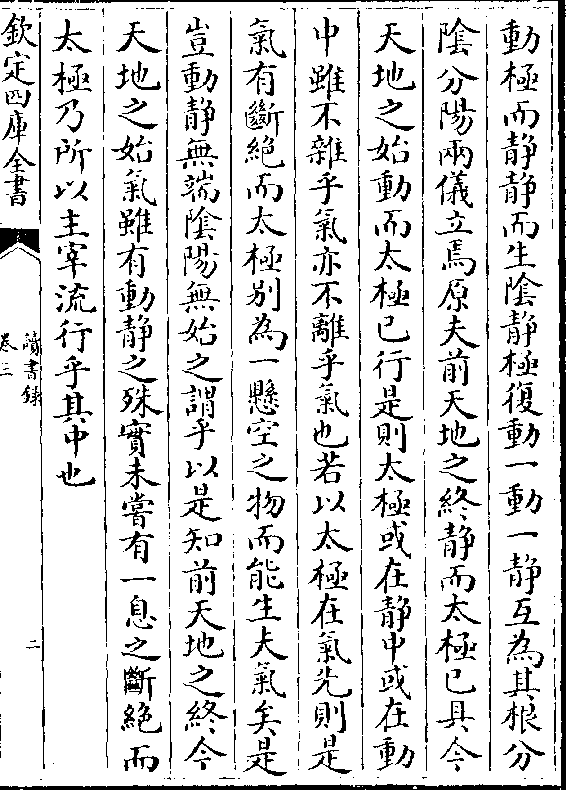 動極而静静而生陰静極復動一動一静互為其根分
陰分陽兩儀立焉原夫前天地之終静而太極已具今
天地之始動而太極已行是則太極或在静中或在動
中雖不雜乎氣亦不離乎氣也若以太極在氣先則是
氣有斷絶而太極别為一懸空之物而能生夫氣矣是
豈動静無端陰陽無始之謂乎以是知前天地之終今
天地之始氣雖有動静之殊實未嘗有一息之斷絶而
太極乃所以主宰流行乎其中也
欽定四庫全書
讀書録
卷三
二